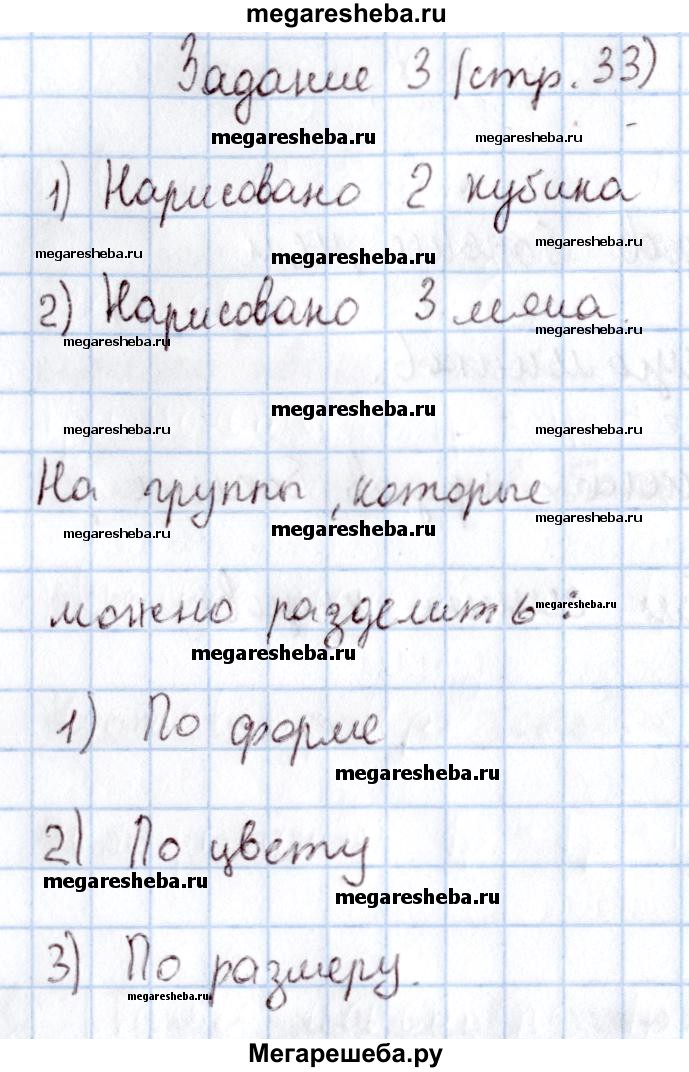 megaresheba.ru
Задание 3 (стр. 33)
megaresheba.ru megaresheba.ru
1) Нарисовано 2 кубика
megaresheba.ru megaresheba.ru megaresheba.ru
2) Нарисовано 3 мяча.
megaresheba.ru megaresheba.ru
megaresheba.ru
megaresheba.ru megaresheba.ru
На группы, которые
megaresheba.ru megaresheba.ru megaresheba.ru
можно разделить:
megaresheba.ru
megaresheba.ru
1) По форме
megaresheba.ru
2) По цвету
megaresheba.ru megaresheba.ru
3) По размеру.
megaresheba.ru
Мегарешеба.ру